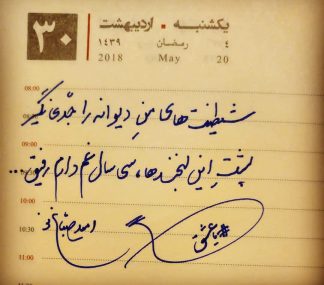 یکشنبه . اردیبهشت
۳۰
٤ رمضان ١٤٣٩
2018 May 20
08:00
شیطنت های منِ دیوانه را جدّی نگیر
08:30
09:00
پشتِ این لبخندها، سی سال غم دارم رفیق...
09:30
10:00
#یا عشق
امید صباغ نو
10:30
11:00